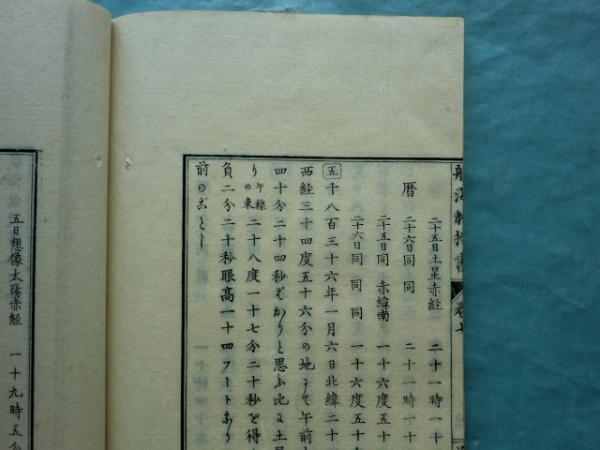 航海教授書
卷七
二十五日土星赤経 二十一時一十
暦 二十六日同 同 二十一時一十
二十五日同 赤緯南 一十六度五十
二十六日同 同 同 一十六度五十
五 千八百三十六年一月六日北緯二十
西経三十四度五十六分の地にて午前
四十分二十四秒ばかりと思ふ比に土星
り 午線の東 二十八度一十七分二十秒を得
負二分二十秒眼高一十四フートあり
前のごとし
五日想像太陽赤経 一十九時五分